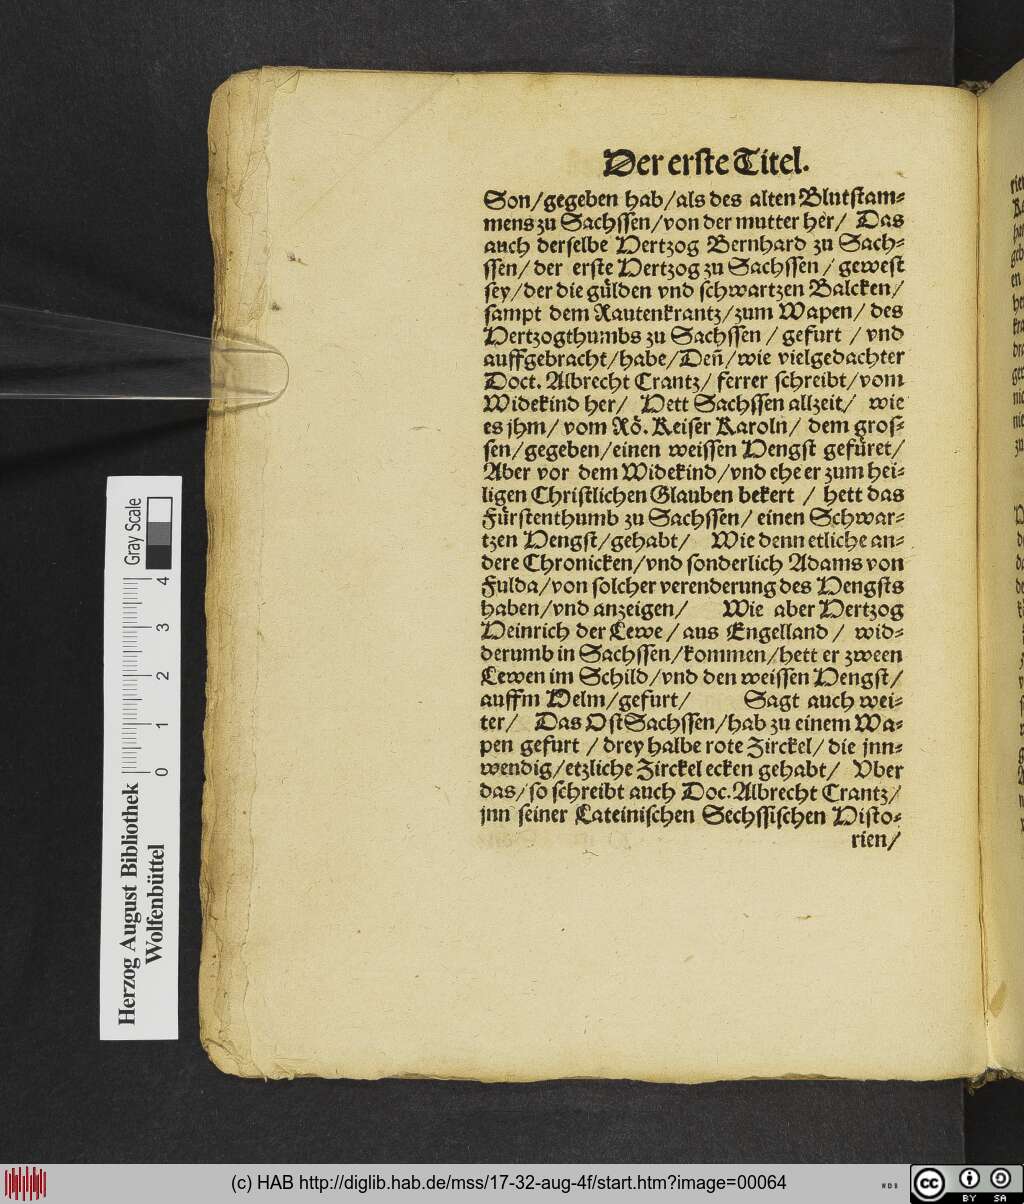 Der erste Titel.
Son/gegeben hab/als des alten Blutstam⸗
mens zu Sachssen/von der mutter her/ Das
auch derselbe Hertzog Bernhard zu Sach⸗
ssen/der erste Hertzog zu Sachssen/gewest
sey/der die gülden vnd schwartzen Balcken/
sampt dem Rautenkrantz/zum Wapen/des
Hertzogthumbs zu Sachssen/gefurt/vnd
auffgebracht/habe/Deñ/wie vielgedachter
Doct. Albrecht Crantz/ferrer schreibt/vom
Widekind her/ Hett Sachssen allzeit/ wie
es jhm/vom Rö. Keiser Karoln/dem gros⸗
sen/gegeben/einen weissen Hengst gefüret/
Aber vor dem Widekind/vnd ehe er zum hei⸗
ligen Christlichen Glauben bekert/hett das
Fürstenthumb zu Sachssen/einen Schwar⸗
tzen Hengst/gehabt/ Wie denn etliche an⸗
dere Chronicken/vnd sonderlich Adams von
Fulda/von solcher verenderung des Hengsts
haben/vnd anzeigen/ Wie aber Hertzog
Heinrich der Lewe/aus Engelland/ wid⸗
derumb in Sachssen/kommen/hett er zween
Lewen im Schild/vnd den weissen Hengst/
auffm Helm/gefurt/ Sagt auch wei⸗
ter/ Das OstSachssen/hab zu einem Wa⸗
pen gefurt/drey halbe rote Zirckel/die jnn⸗
wendig/etzliche Zirckel ecken gehabt/ Vber
das/so schreibt auch Doc. Albrecht Crantz/
jnn seiner Lateinischen Sechssischen Histo⸗
rien/
Herzog August Bibliothek
Wolfenbüttel
Gray Scale
0 1 2 3 4
(c) HAB http://diglib.hab.de/mss/17-32-aug-4f/start.htm?image=00064
WDB
cc BY SA